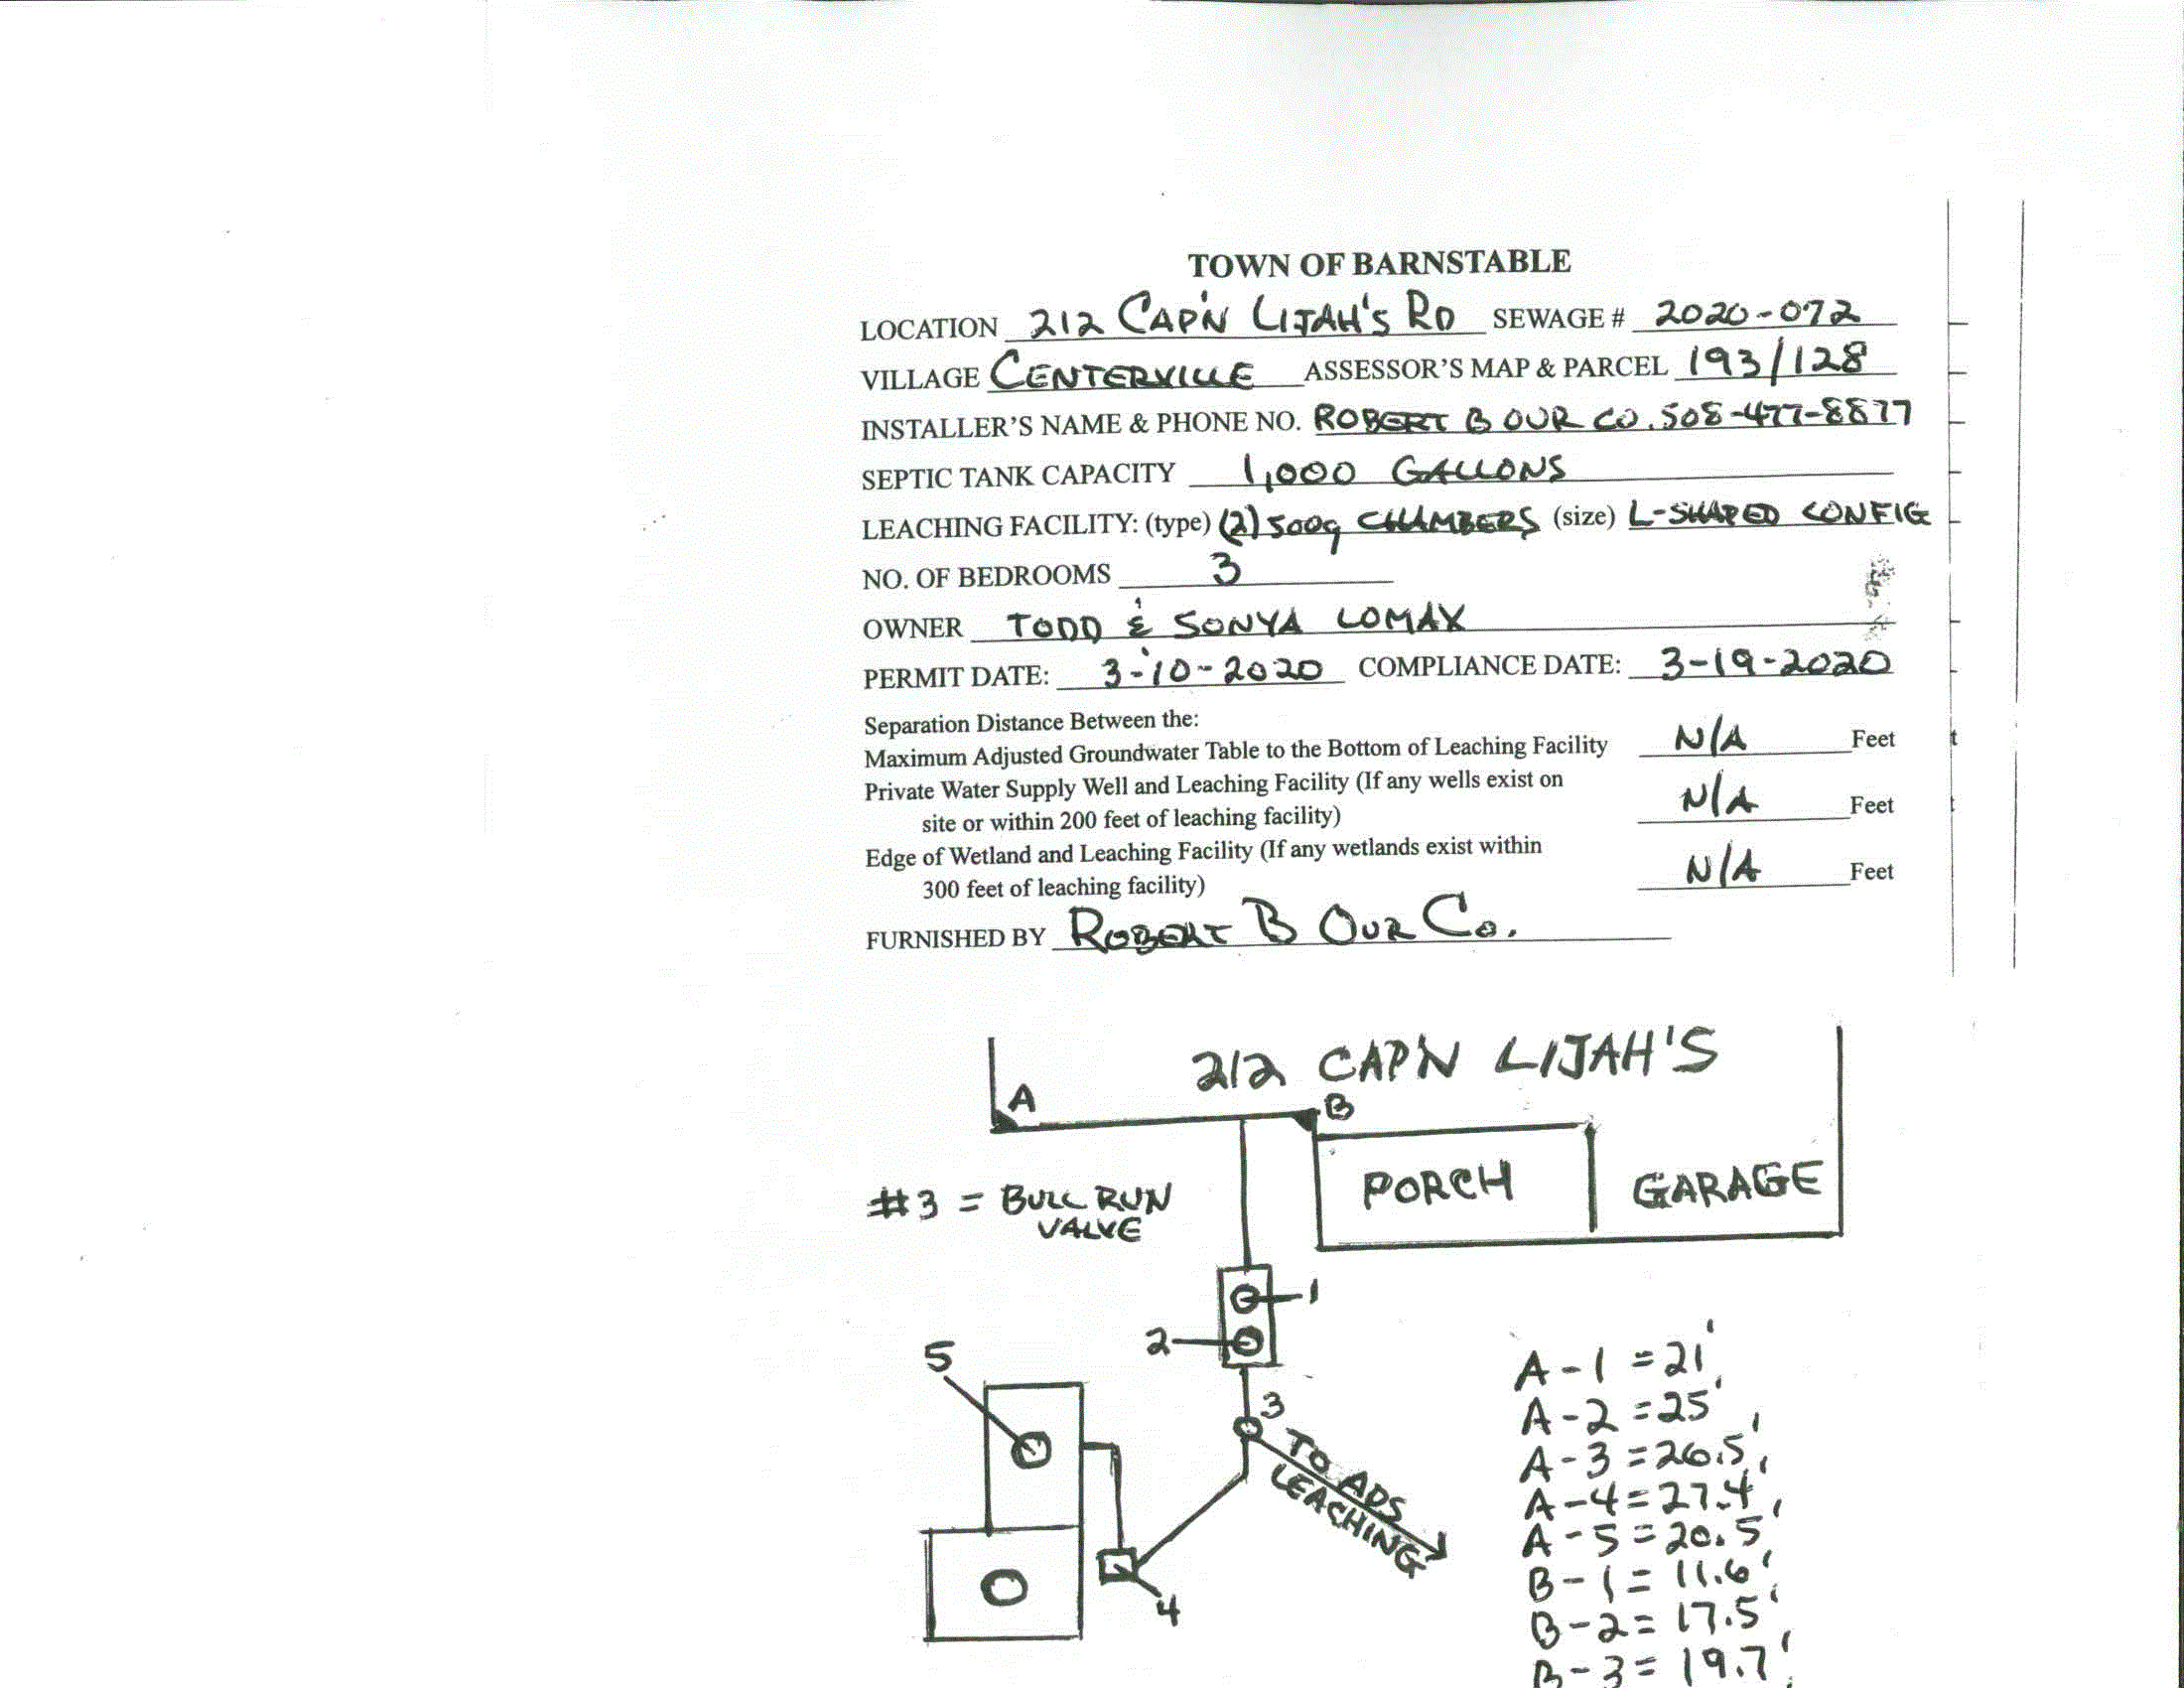 TOWN OF BARNSTABLE
LOCATION 212 CAP'N LIJAH'S RD SEWAGE # 2020-072
VILLAGE CENTERVILLE ASSESSOR'S MAP & PARCEL 193/128
INSTALLER'S NAME & PHONE NO. ROBERT B OUR CO. 508-477-8877
SEPTIC TANK CAPACITY 1,000 GALLONS
LEACHING FACILITY: (type) (2) 500g CHAMBERS (size) L-SHAPED CONFIG
NO. OF BEDROOMS 3
OWNER TODD & SONYA LOMAX
PERMIT DATE: 3-10-2020 COMPLIANCE DATE: 3-19-2020
Separation Distance Between the:
Maximum Adjusted Groundwater Table to the Bottom of Leaching Facility N/A Feet
Private Water Supply Well and Leaching Facility (If any wells exist on
site or within 200 feet of leaching facility) N/A Feet
Edge of Wetland and Leaching Facility (If any wetlands exist within
300 feet of leaching facility) N/A Feet
FURNISHED BY ROBERT B OUR CO.
212 CAP'N LIJAH'S
A
B
PORCH
GARAGE
#3 = BULL RUN
VALVE
1
2
3
5
TO ADS
LEACHING
4
A-1 = 21'
A-2 = 25'
A-3 = 26.5'
A-4 = 27.4'
A-5 = 20.5'
B-1 = 11.6'
B-2 = 17.5'
B-3 = 19.7'